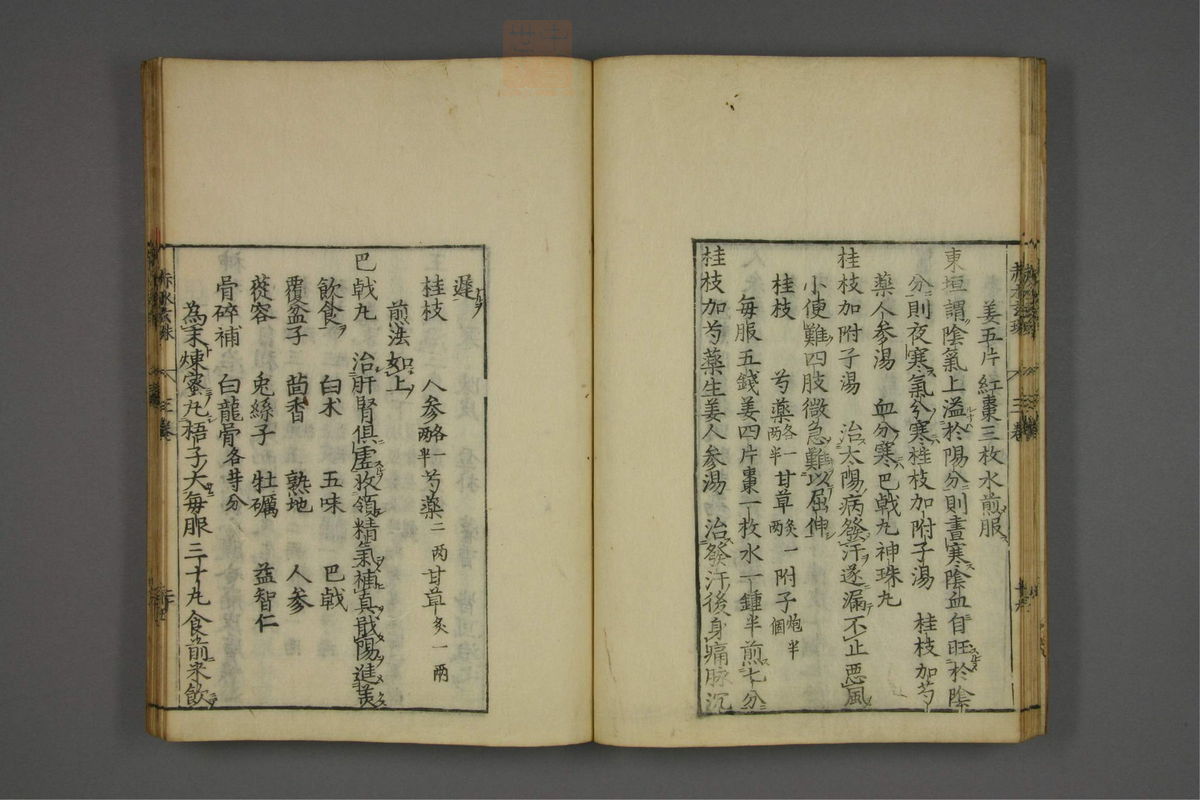 姜五片紅棗三枚水煎服
東垣謂陰氣上溢於陽分則晝寒陰血自旺於陰
分則夜寒氣分寒桂枝加附子湯 桂枝加芍
藥人參湯 血分寒巴戟丸神珠丸
桂枝加附子湯 治太陽病發汗遂漏不止惡風
小便難四肢微急難以屈伸
桂枝 芍藥各一兩半 甘草炙一兩 附子炮半個
每服五錢姜四片棗一枚水一鍾半煎七分
桂枝加芍藥生姜人參湯 治發汗後身痛脉沉
遲
桂枝 人參各一兩半 芍藥二兩 甘草炙一兩
煎法如上
巴戟丸 治肝腎俱虛收領精氣補真戢陽進美
飲食
白术 五味 巴戟
覆盆子 茴香 熟地 人參
蓯容 兎絲子 牡礪 益智仁
骨碎補 白龍骨各等分
為末煉蜜丸梧子大每服三十丸食前米飲